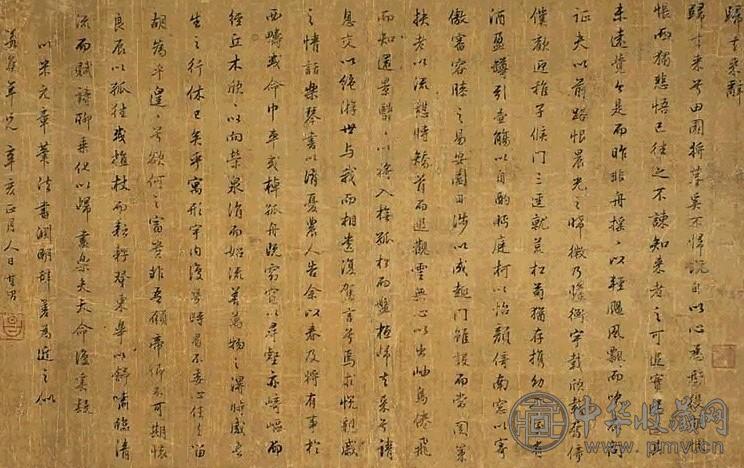 歸去來辭
歸去來兮田園將蕪奚不歸既自以心為形役奚惆
悵而獨悲悟已往之不諫知來者之可追實迷途其
未遠覺今是而昨非舟搖搖以輕颺風飄飄而吹衣問
征夫以前路恨晨光之微乃瞻衡宇載欣載奔僮
僕歡迎稚子候門三逕就荒松菊猶存攜幼入室有
酒盈罇引壺觴以自酌眄庭柯以怡顏倚南窓以寄
傲審容膝之易安園日涉以成趣門雖設而常関策
扶老以流憩時矯首而遐觀雲無心以出岫鳥倦飛
而知還景翳翳以將入撫孤松而盤桓歸去來兮請
息交以絕游世與我而相遺復駕言兮焉求悅親戚
之情話樂琴書以消憂農人告余以春及將有事於
西疇或命巾車或棹孤舟既窈窕以尋壑亦崎嶇而
經丘木欣欣以向榮泉涓涓而始流羨萬物之得時感吾
生之行休已矣乎寓形宇內復幾時曷不委心任去留
胡為乎遑遑兮欲何之富貴非吾願帝鄉不可期懷
良辰以孤往或植杖而耘耔登東皋以舒嘯臨清
流而賦詩聊乘化以歸盡樂夫天命復奚疑
以米元章筆法書淵明辭差為近之
辛亥正月人日 其昌
中华收藏网
www.pmv.cn